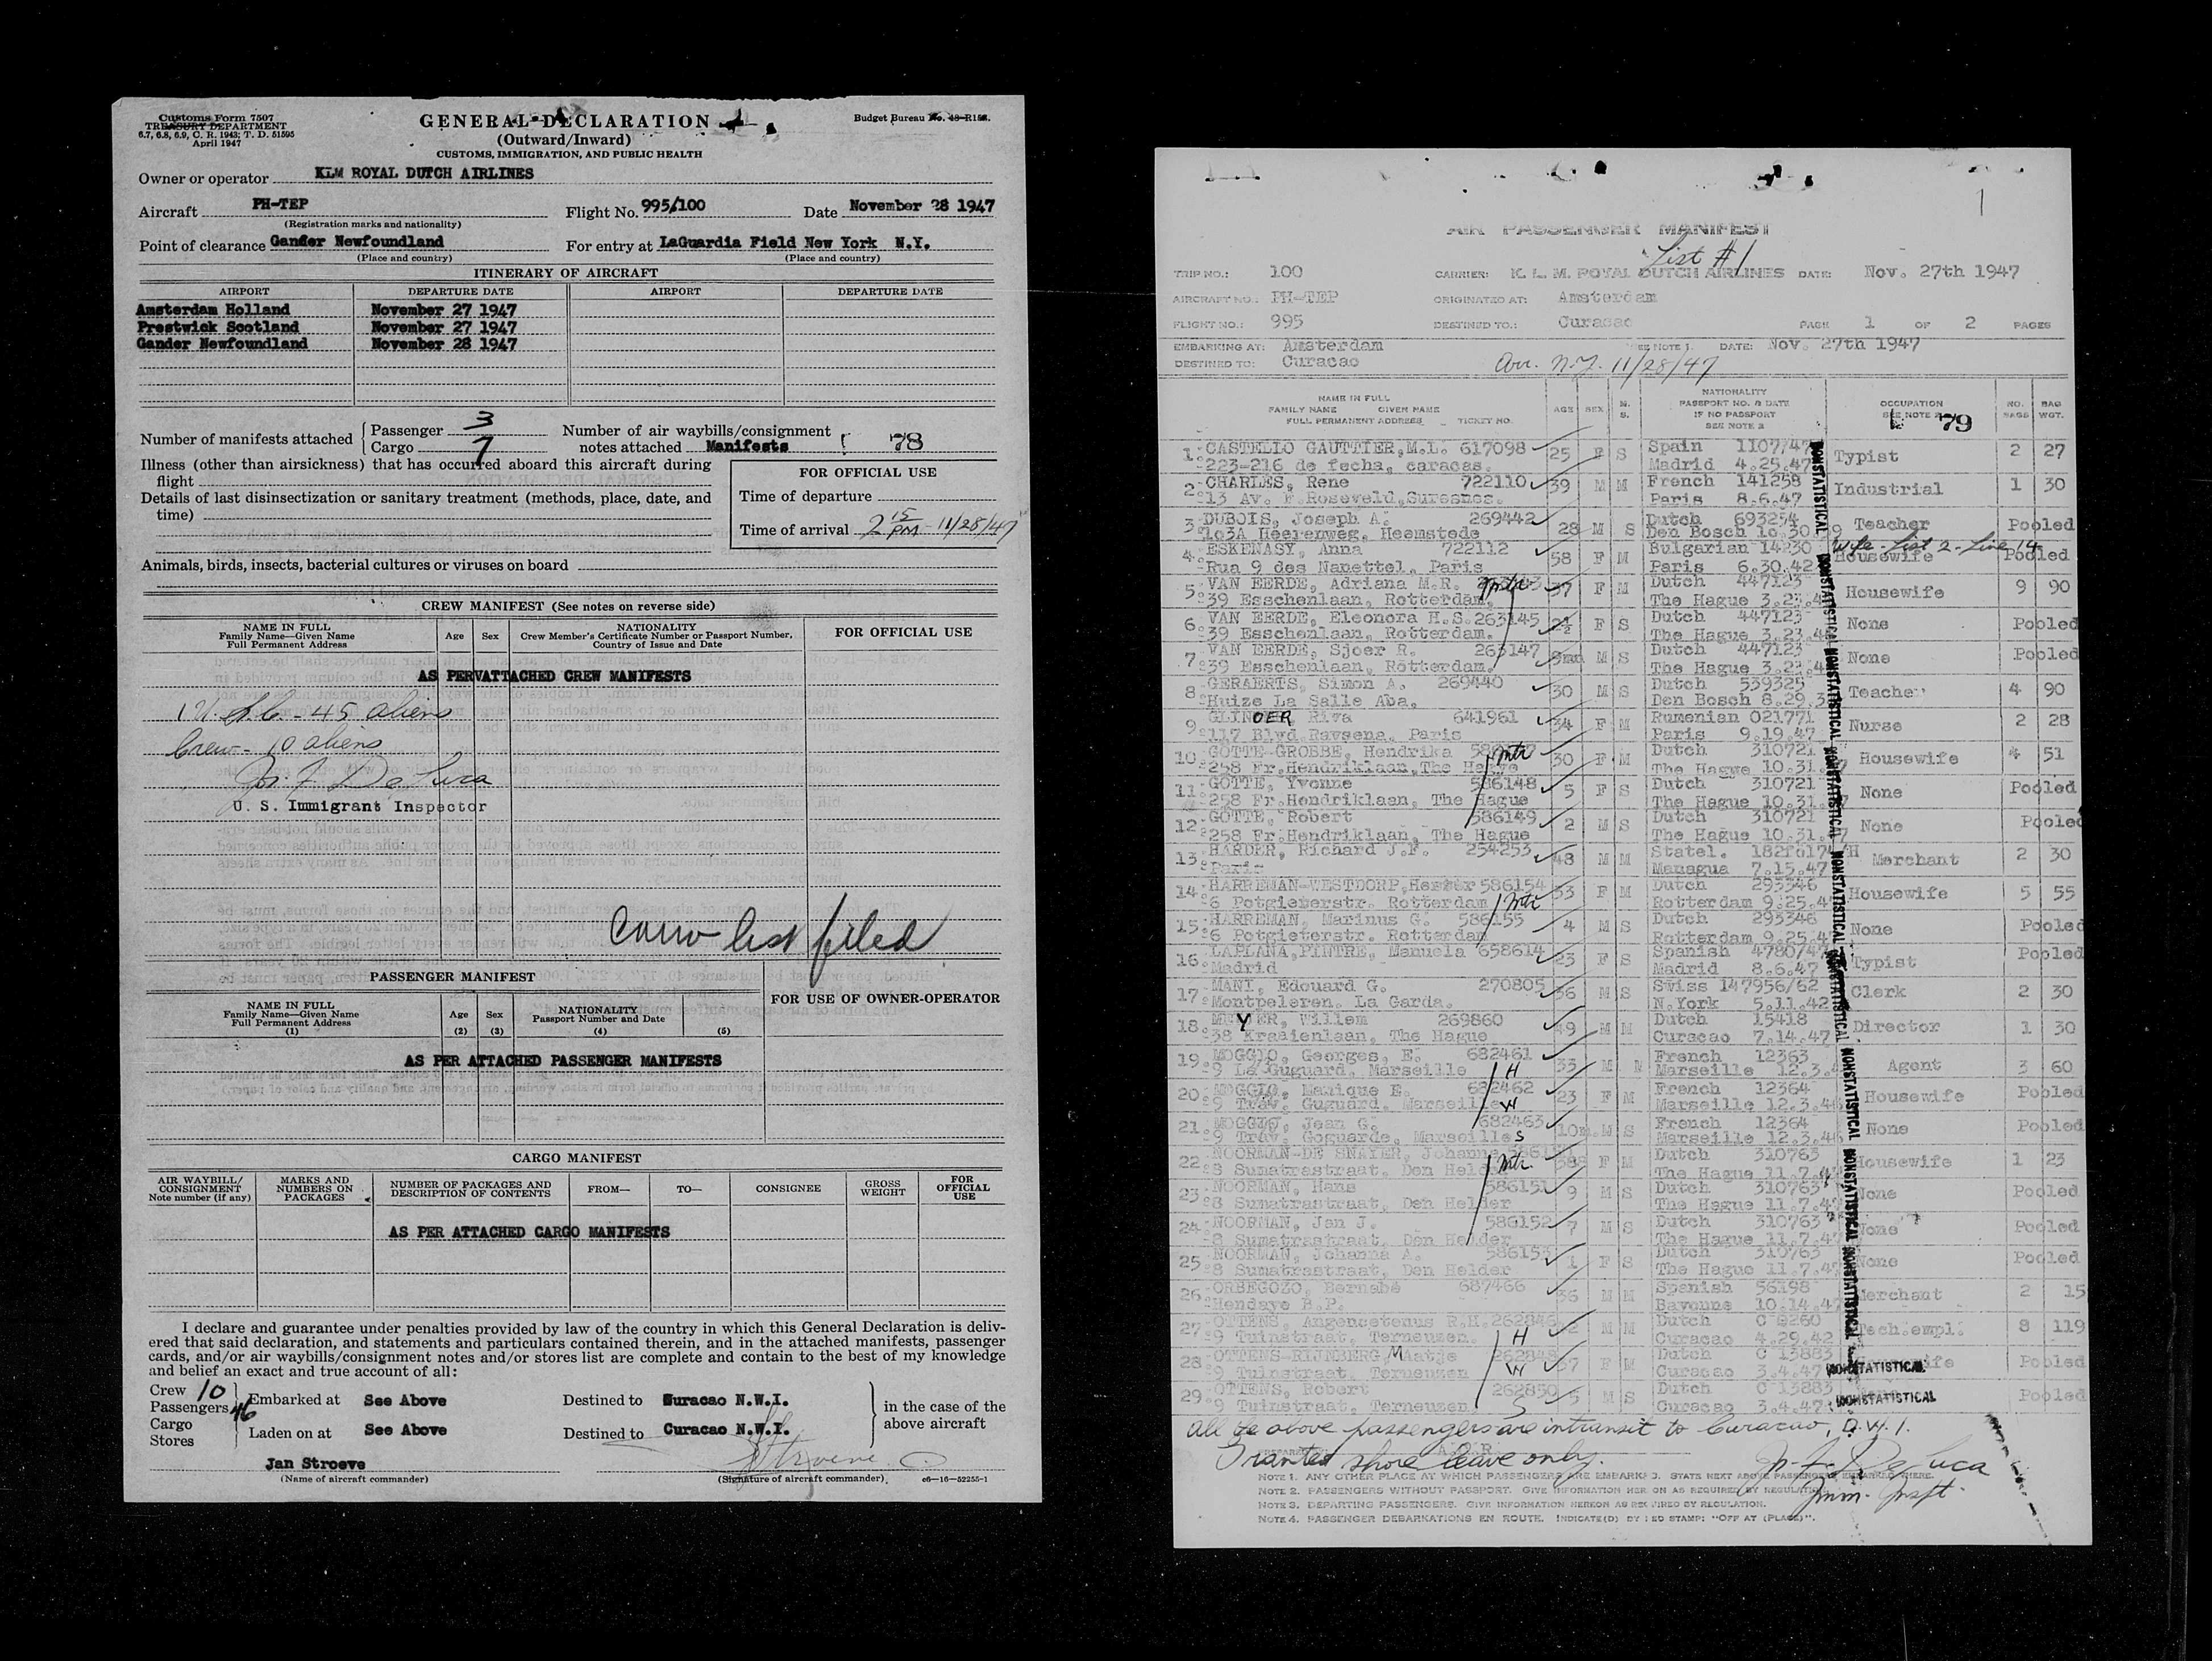 Customs Form 7507
TREASURY DEPARTMENT
6.7, 6.8, 6.9, C. R. 1943; T. D. 51595
April 1947
GENERAL DECLARATION
(Outward/Inward)
CUSTOMS, IMMIGRATION, AND PUBLIC HEALTH
Budget Bureau No.
Owner or operator KLM ROYAL DUTCH AIRLINES
Aircraft PH-TEP Flight No. 995/100 Date November 28 1947
(Registration marks and nationality)
Point of clearance Gander Newfoundland For entry at LaGuardia Field New York N.Y.
(Place and country) (Place and country)
ITINERARY OF AIRCRAFT
AIRPORT DEPARTURE DATE AIRPORT DEPARTURE DATE
Amsterdam Holland November 27 1947
Prestwick Scotland November 27 1947
Gander Newfoundland November 28 1947
Number of manifests attached
Passenger 3
Cargo 7
Number of air waybills/consignment
notes attached Manifests 78
Illness (other than airsickness) that has occurred aboard this aircraft during
flight
Details of last disinsectization or sanitary treatment (methods, place, date, and
time)
FOR OFFICIAL USE
Time of departure
Time of arrival 2 15 PM - 11/28/47
Animals, birds, insects, bacterial cultures or viruses on board
CREW MANIFEST (See notes on reverse side)
NAME IN FULL
Family Name—Given Name
Full Permanent Address
Age Sex
NATIONALITY
Crew Member's Certificate Number or Passport Number,
Country of Issue and Date
FOR OFFICIAL USE
AS PER ATTACHED CREW MANIFESTS
1 U.S.C. - 45 aliens
Crew - 10 aliens
Jos. F. De Luca
U. S. Immigrant Inspector
Crew list filed
PASSENGER MANIFEST
FOR USE OF OWNER-OPERATOR
NAME IN FULL
Family Name—Given Name
Full Permanent Address
(1)
Age
(2)
Sex
(3)
NATIONALITY
Passport Number and Date
(4)
(5)
AS PER ATTACHED PASSENGER MANIFESTS
CARGO MANIFEST
AIR WAYBILL/
CONSIGNMENT
Note number (if any)
MARKS AND
NUMBERS ON
PACKAGES
NUMBER OF PACKAGES AND
DESCRIPTION OF CONTENTS
FROM—
TO—
CONSIGNEE
GROSS
WEIGHT
FOR
OFFICIAL
USE
AS PER ATTACHED CARGO MANIFESTS
I declare and guarantee under penalties provided by law of the country in which this General Declaration is deliv-
ered that said declaration, and statements and particulars contained therein, and in the attached manifests, passenger
cards, and/or air waybills/consignment notes and/or stores list are complete and contain to the best of my knowledge
and belief an exact and true account of all:
Crew 10
Passengers 46
Cargo
Stores
Embarked at See Above Destined to Curacao N.W.I.
Laden on at See Above Destined to Curacao N.W.I.
in the case of the
above aircraft
Jan Stroeve
(Name of aircraft commander)
(Signature of aircraft commander)
c6—16—52255-1
1
AIR PASSENGER MANIFEST
List #1
TRIP NO.: 100 CARRIER: K. L. M. ROYAL DUTCH AIRLINES DATE: Nov. 27th 1947
AIRCRAFT NO.: PH-TEP ORIGINATED AT: Amsterdam
FLIGHT NO.: 995 DESTINED TO.: Curacao PAGE 1 OF 2 PAGES
EMBARKING AT: Amsterdam SEE NOTE 1. DATE: Nov. 27th 1947
DESTINED TO: Curacao Arr. N.Y. 11/28/47
NAME IN FULL
FAMILY NAME GIVEN NAME
FULL PERMANENT ADDRESS TICKET NO.
AGE SEX M. S.
NATIONALITY
PASSPORT NO. & DATE
IF NO PASSPORT
SEE NOTE 2
OCCUPATION
SEE NOTE
79
NO. BAGS
BAG WGT.
1. CASTELLO GAUTTIER, M.L. 617098 25 F S Spain 1107/47 Typist 2 27
223-216 de fecha, caracas. Madrid 4.25.47
2. CHARLES, Rene 722110 39 M M French 141258 Industrial 1 30
13 Av. F.Roseveld, Suresnes. Paris 8.6.47
3. DUBOIS, Joseph A. 269442 28 M S Dutch 693254 Teacher Pooled
103A Heerenweg, Heemstede Den Bosch 10.30
Wife - List 2 - Line 14
4. ESKENASY, Anna 722112 58 F M Bulgarian 14230 Housewife Pooled
Rua 9 des Nanettel, Paris Paris 6.30.42
5. VAN EERDE, Adriana M.R. Mtr 37 F M Dutch 447123 Housewife 9 90
39 Esschenlaan, Rotterdam. The Hague 3.23.4
6. VAN EERDE, Eleonora H.S. 263145 2½ F S Dutch 447123 None Pooled
39 Esschenlaan, Rotterdam. The Hague 3.23.4
7. VAN EERDE, Sjoer R. 263147 9mn M S Dutch 447123 None Pooled
39 Esschenlaan, Rotterdam. The Hague 3.23.4
8. GERAERTS, Simon A. 269440 30 M S Dutch 539325 Teacher 4 90
Huize La Salle Aba. Den Bosch 8.29.3
9. GLINOER Riva 641961 34 F M Rumenian 021771 Nurse 2 28
117 Blvd Ravsena, Paris Paris 9.19.47
10. GOTTE-GROBBE, Hendrika Mtr 30 F M Dutch 310721 Housewife 4 51
258 Fr.Hendriklaan, The Hague The Hague 10.31.
11. GOTTE, Yvonne 586148 5 F S Dutch 310721 None Pooled
258 Fr.Hendriklaan, The Hague The Hague 10.31.
12. GOTTE, Robert 586149 2 M S Dutch 310721 None Pooled
258 Fr.Hendriklaan, The Hague The Hague 10.31.
13. HARDER, Richard J.F. 254253 48 M M Statel. Merchant 2 30
Paris Managua 7.15.47
14. HARREMAN-WESTDORP, Hester 586154 33 F M Dutch 293346 Housewife 5 55
6 Potgieterstr. Rotterdam Mtr Rotterdam 9.25.4
15. HARREMAN, Marinus G. 586155 4 M S Dutch 293346 None Pooled
6 Potgieterstr. Rotterdam Rotterdam 9.25.4
16. LAPLANA, PINTRE, Manuela 658614 23 F S Spanish 4780/47 Typist Pooled
Madrid Madrid 8.6.47
17. MANI, Edouard G. 270805 36 M S Swiss 147956/62 Clerk 2 30
Montpeleren. La Garda. N.York 5.11.42
18. MEYER, Willem 269860 49 M M Dutch 15418 Director 1 30
38 Kraaienlaan, The Hague Curacao 7.14.47
19. MOGGIO, Georges, E. 682461 33 M M French 12363 Agent 3 60
9 La Guguard, Marseille H Marseille 12.3.4
20. MOGGIO, Manique E. 682462 23 F M French 12364 Housewife Pooled
9 Trav. Guguard, Marseille W Marseille 12.3.46
21. MOGGIO, Jean G. 682463 10m. M S French 12364 None Pooled
9 Trav. Goguarde, Marseille S Marseille 12.3.46
22. NOORMAN-DE SNAYER, Johanna Mtr 38 F M Dutch 310763 Housewife 1 23
8 Sumatrastraat, Den Helder The Hague 11.7.4
23. NOORMAN, Hans 586151 9 M S Dutch 310763 None Pooled
8 Sumatrastraat, Den Helder The Hague 11.7.4
24. NOORMAN, Jan J. 586152 7 M S Dutch 310763 None Pooled
8 Sumatrastraat, Den Helder The Hague 11.7.4
25. NOORMAN, Johanna A. 586153 1 F S Dutch 310763 None Pooled
8 Sumatrastraat, Den Helder The Hague 11.7.4
26. ORBEGOZO, Bernabé 687466 36 M M Spanish 56198 Merchant 2 15
Hendaye B.P. Bayonne 10.14.4
27. OTTENS, Angencetenus R.H. 262846 42 M M Dutch C 9260 Tech.empl. 8 119
9 Tuinstraat, Terneuzen. H Curacao 4.29.42
28. OTTENS-RIJNBERG, Maatje 37 F M Dutch C 13883 Pooled
9 Tuinstraat, Terneuzen W Curacao 3.4.47
29. OTTENS, Robert 262850 5 M S Dutch C 13883 Pooled
9 Tuinstraat, Terneuzen S Curacao 3.4.47
NONSTATISTICAL
NONSTATISTICAL
NONSTATISTICAL
NONSTATISTICAL
NONSTATISTICAL
NONSTATISTICAL
NONSTATISTICAL
NONSTATISTICAL
NONSTATISTICAL
NONSTATISTICAL
All the above passengers are intransit to Curacao, D.W.I.
Granted shore leave only.
J. F. De Luca
Imm. Inspt.
NOTE 1. ANY OTHER PLACE AT WHICH PASSENGERS ARE EMBARKED. STATE NEXT ABOVE PASSENGERS EMBARKED THERE.
NOTE 2. PASSENGERS WITHOUT PASSPORT. GIVE INFORMATION HEREON AS REQUIRED BY REGULATION.
NOTE 3. DEPARTING PASSENGERS. GIVE INFORMATION HEREON AS REQUIRED BY REGULATION.
NOTE 4. PASSENGER DEBARKATIONS EN ROUTE. INDICATE(D) BY RED STAMP: "OFF AT (PLACE)".